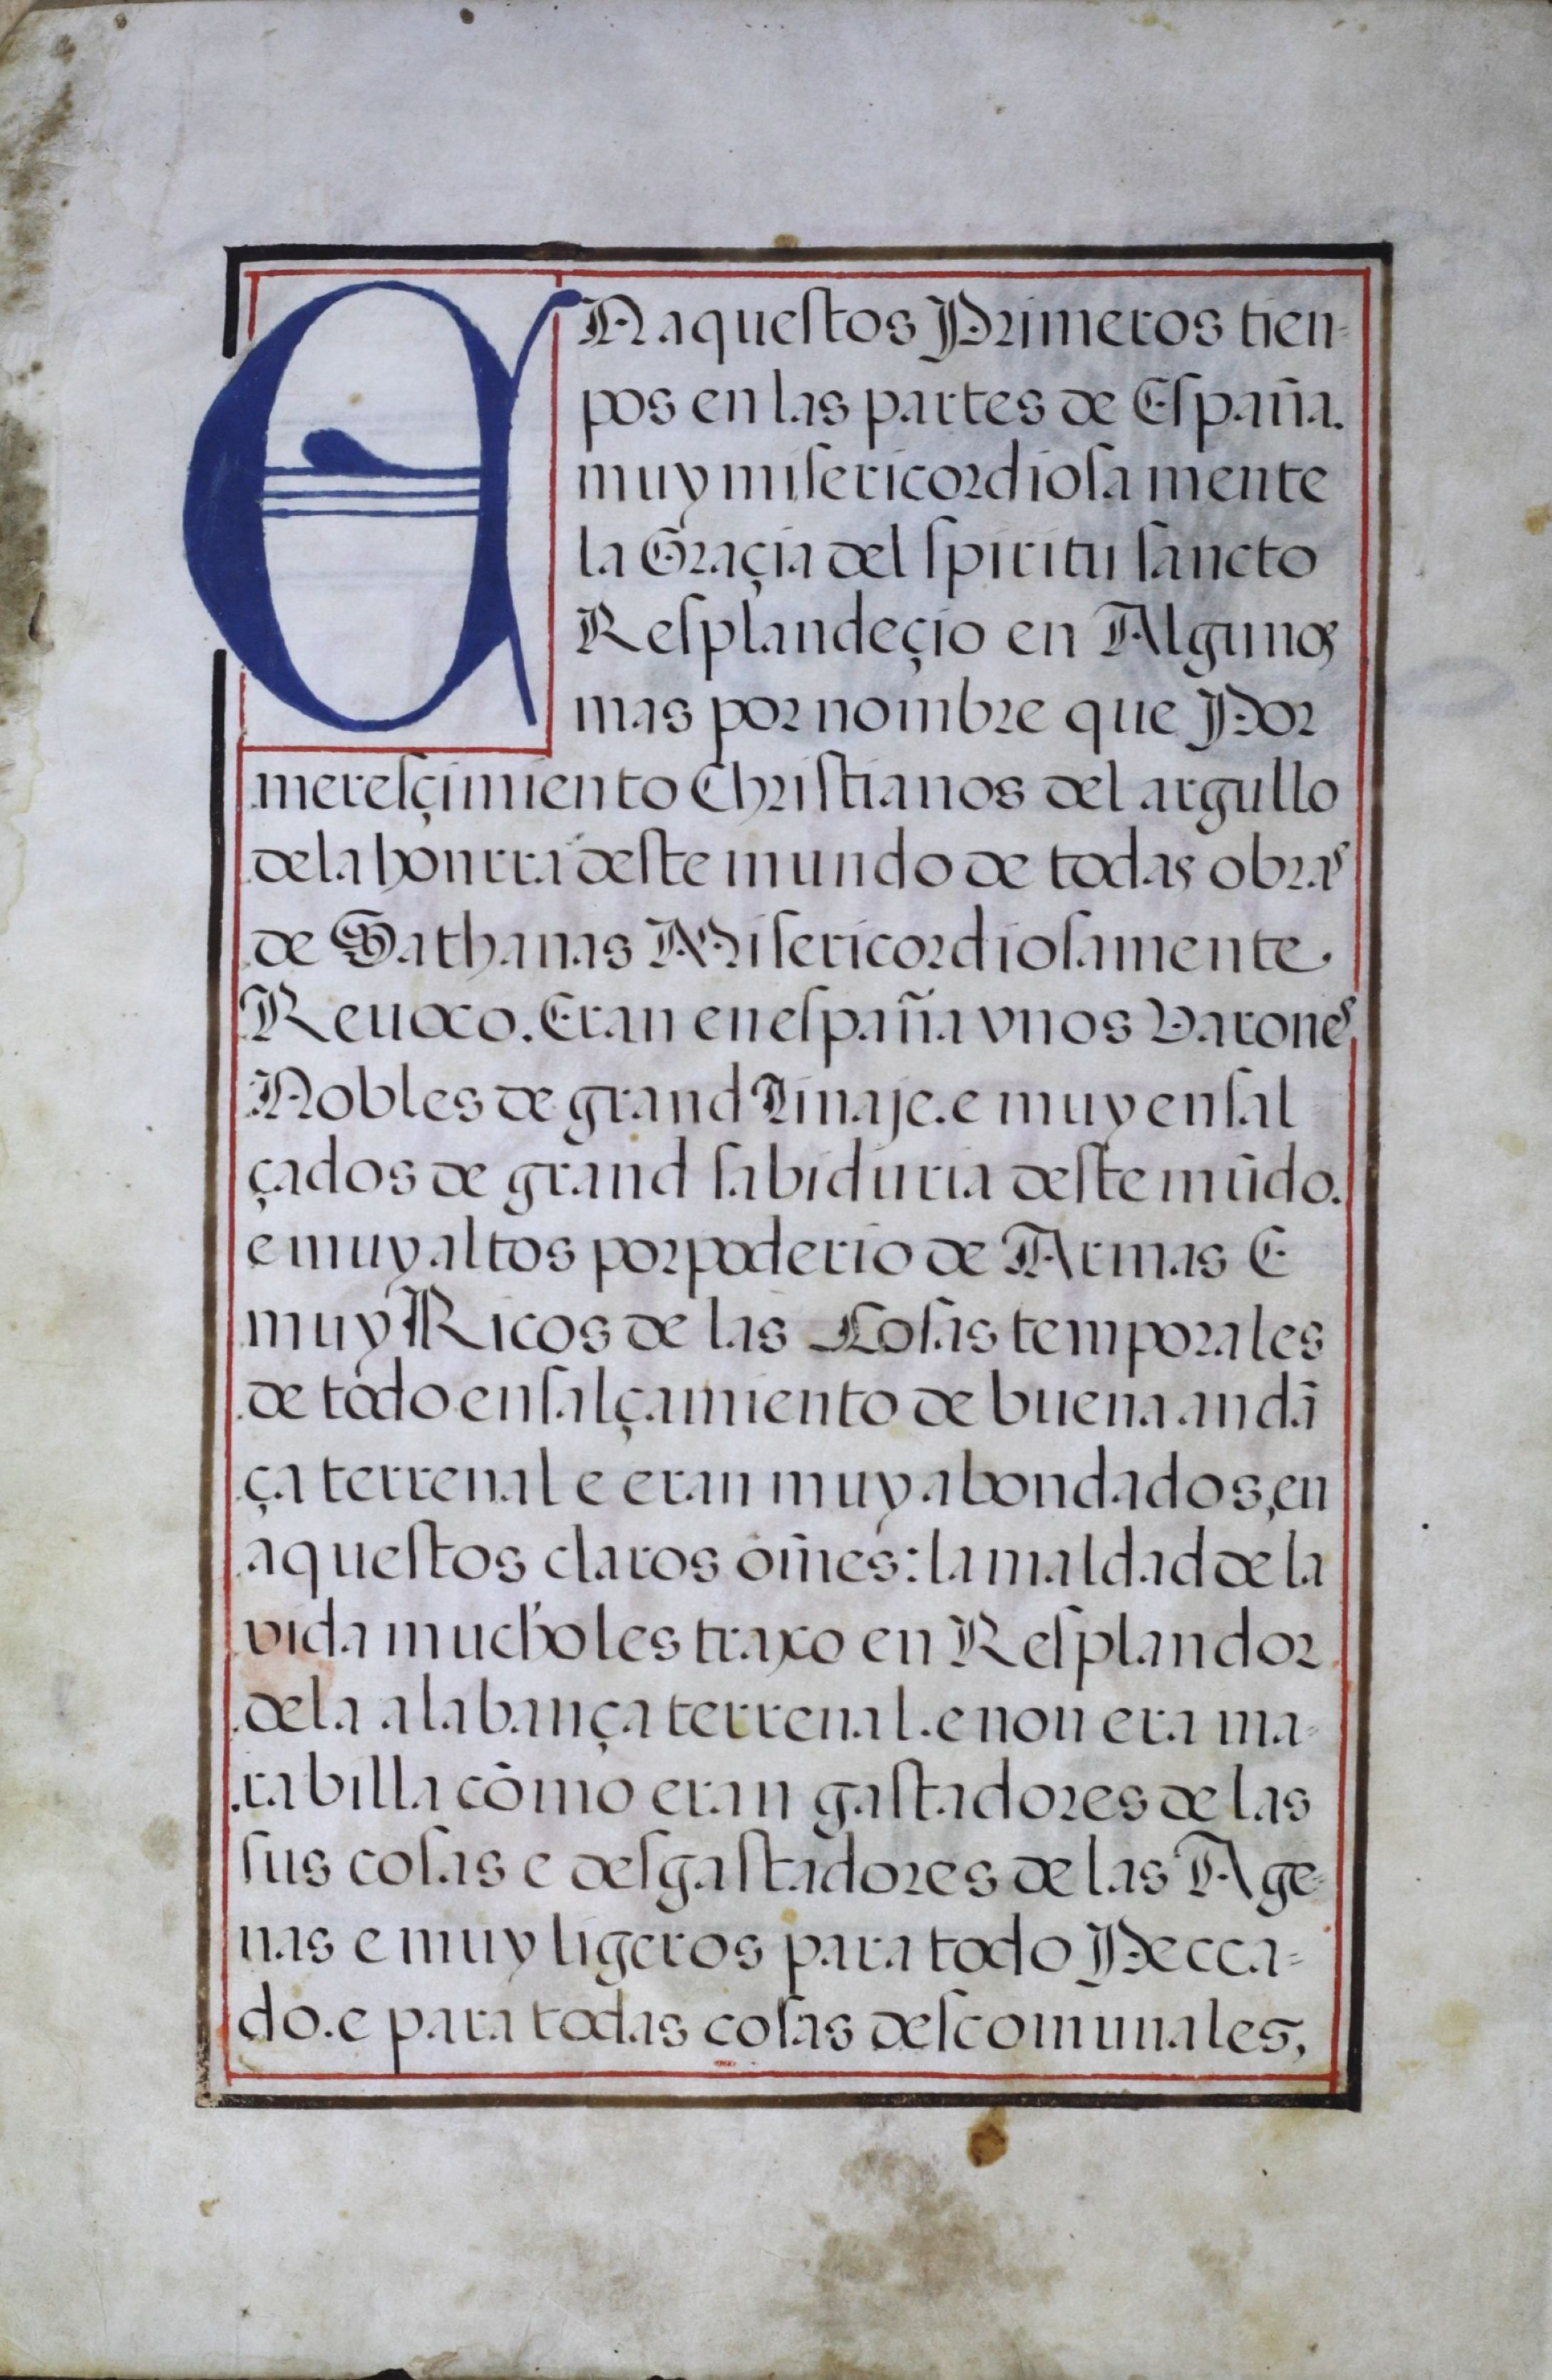 EN aqueſtos Primeros tien-
pos en las partes de Eſpaña.
muy miſericordioſa mente
la Graçia del ſpiritu ſancto
Reſplandeçio en Algunos
mas por nombre que Por
mereſçimiento Chriſtianos del argullo
dela honrra deſte mundo de todas obras
de Sathanas Miſericordioſamente
Reuoco. Eran en eſpaña vnos Varones
Nobles de grand Linaje. e muy enſal
çados de grand ſabiduria deſte mũdo.
e muy altos por poderio de Armas E
muy Ricos de las Coſas temporales
de todo enſalçamiento de buena andã
ça terrenal e eran muy abondados, en
aqueſtos claros om̃es: la maldad de la
vida mucho les traxo en Reſplandor
dela alabança terrenal. e non era ma-
rabilla cõmo eran gaſtadores de las
ſus coſas e deſgaſtadores de las Age-
nas e muy ligeros para todo Pecca-
do. e para todas coſas deſcomunales,